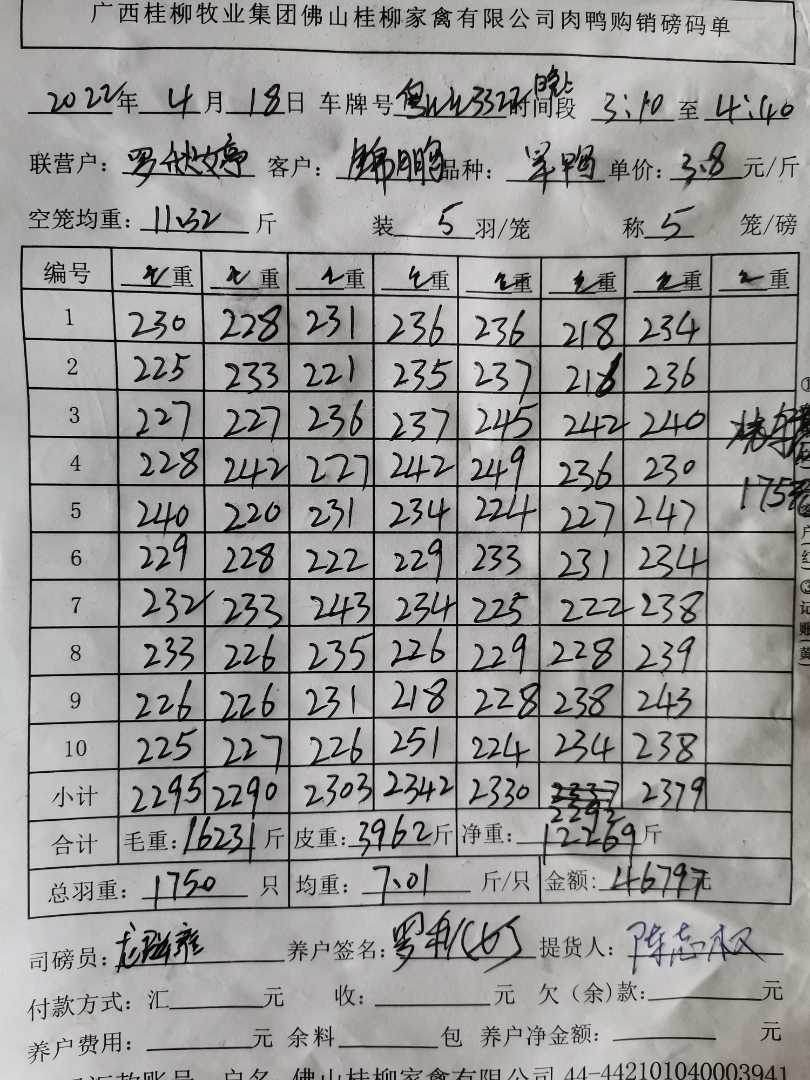 广西桂柳牧业集团佛山桂柳家禽有限公司肉鸭购销磅码单
2022年 4月 18日 车牌号 时间段 晚上 3:10 至 4:40
联营户: 罗秋婷 客户: 锦鹏 品种: 单价: 3.8 元/斤
空笼均重: 11.32 斤 装 5 羽/笼 称 5 笼/磅
编号 毛重 毛重 毛重 毛重 毛重 毛重 毛重 重
1 230 228 231 236 236 218 234
2 225 233 221 235 237 218 236
3 227 227 236 237 245 242 240
4 228 242 227 242 249 236 230
5 240 220 231 234 224 227 247 175
6 229 228 222 229 233 231 234
7 232 233 243 234 225 222 238
8 233 226 235 226 229 228 239
9 226 226 231 218 228 238 243
10 225 227 226 251 224 234 238
小计 2295 2290 2303 2342 2330 2292 2379
合计 毛重: 16231 斤 皮重: 3962 斤 净重: 12269 斤
总羽重: 1750 只 均重: 7.01 斤/只 金额: 46797元
司磅员: 养户签名: 提货人: 陈志权
付款方式: 汇 元 收: 元 欠(余)款: 元
养户费用: 元 余料 包 养户净金额: 元
汇款账号 户名 佛山桂柳家禽有限公司 44-442101040003941
户(红)
③记账(黄)